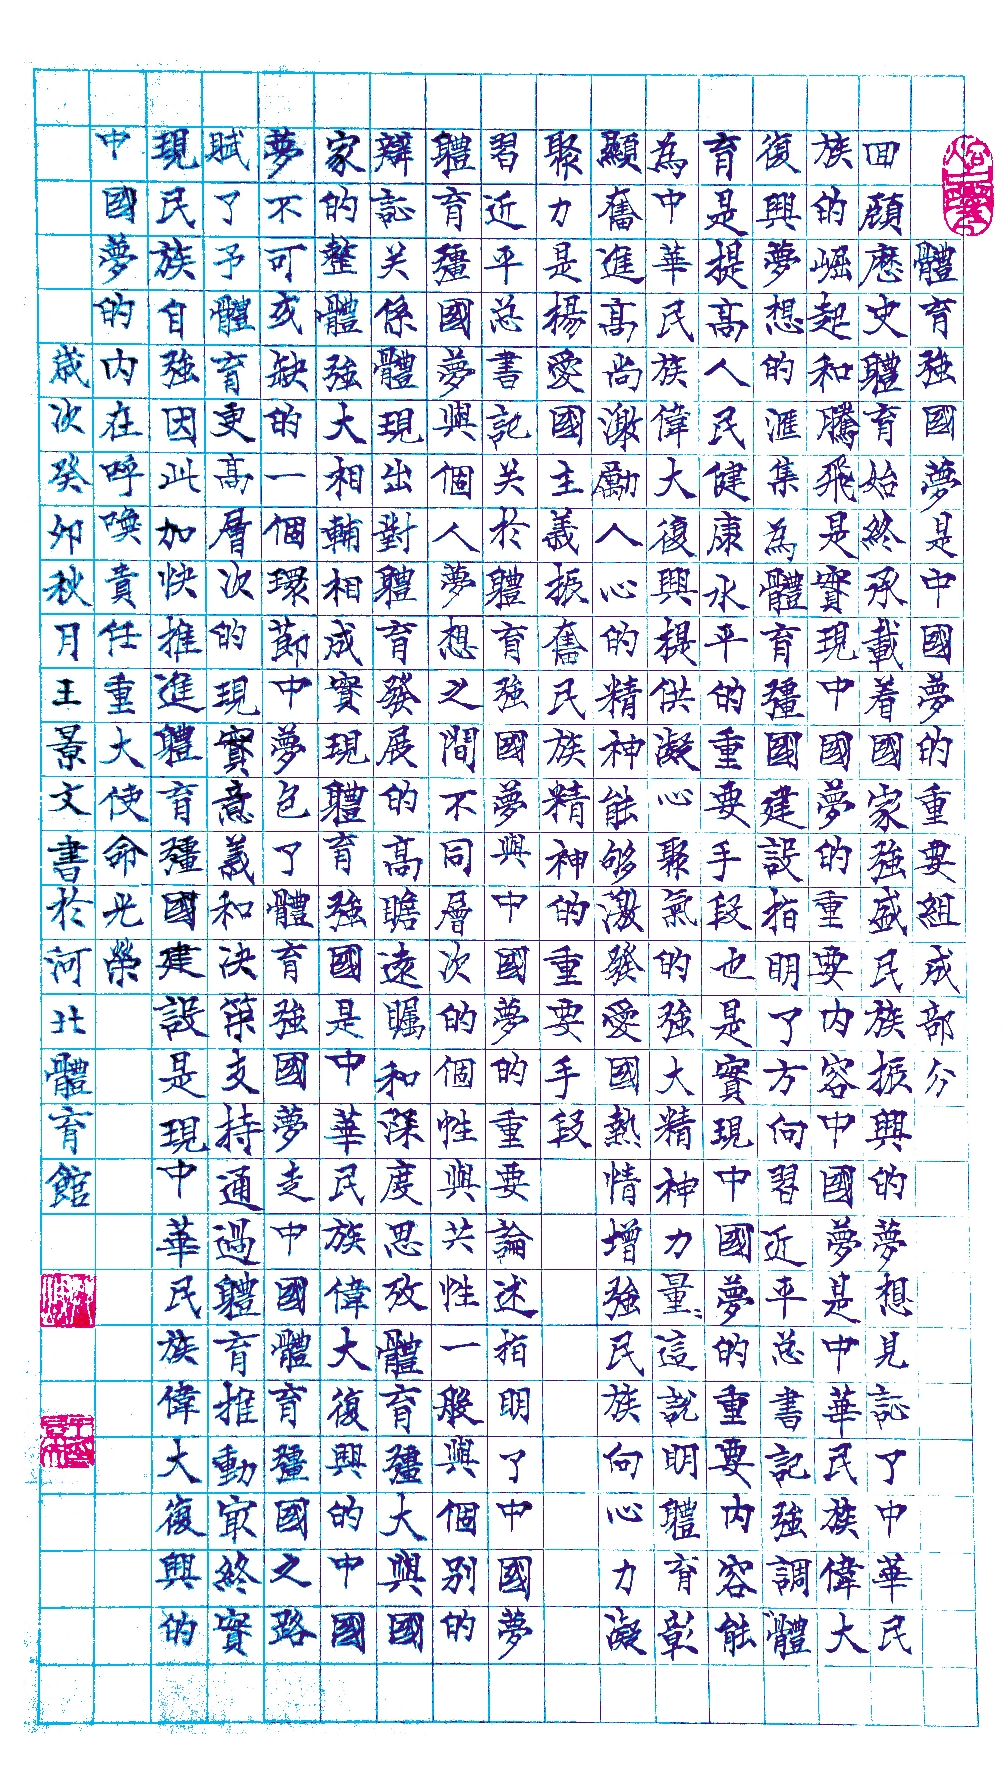 體育強國夢是中國夢的重要組成部分
回顧歷史體育始終承載着國家強盛民族振興的夢想見証了中華民
族的崛起和騰飛是實現中國夢的重要内容中國夢是中華民族偉大
復興夢想的滙集為體育疆國建設指明了方向習近平总書記強調體
育是提高人民健康水平的重要手段也是實現中國夢的重要内容能
為中華民族偉大復興提供凝心聚氣的強大精神力量這說明體育彰
顯奮進高尚激勵人心的精神能够激發愛國熱情增強民族向心力凝
聚力是揚愛國主義振奮民族精神的重要手段
習近平总書記关於體育強國夢與中國夢的重要論述指明了中國夢
體育疆國夢與個人夢想之間不同層次的個性與共性一般與個别的
辯証关係體現出對體育發展的高瞻遠矚和深度思考體育疆大興國
家的整體強大相輔相成實現體育強國是中華民族偉大復興的中國
夢不可或缺的一個環節中夢包了體育強國夢走中國體育疆國之路
賦了予體育更高層次的現實意義和决築支持通過體育推動最終實
現民族自強因此加快推進體育疆國建設是現中華民族偉大復興的
中國夢的内在呼唤責任重大使命光榮
歲次癸卯秋月王景文書於河北體育館